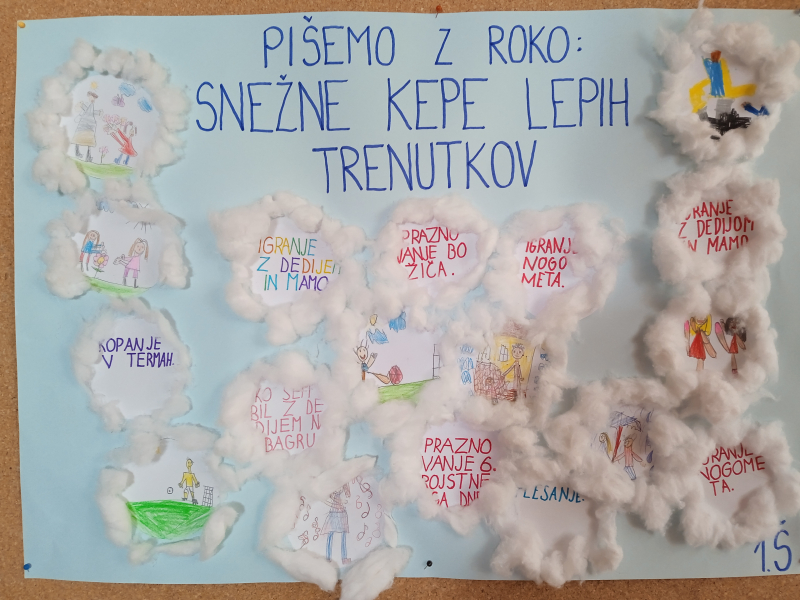 PIŠEMO Z ROKO:
SNEŽNE KEPE LEPIH
TRENUTKOV
IGRANJE
Z DEDIJEM
IN MAMO
PRAZNO
VANJE BO
ŽIČA.
IGRANJE
NOGO
META.
IGRANJE
Z DEDIJOM
IN MAMO
KOPANJE
V TERMAH.
KO SEM
BIL Z DE
DIJEM N
BAGRU
PRAZNO
VANJE 6.
ROJSTNE
GA DNE
PLESANJE.
IGRANJE
NOGOME
TA.
1.Š